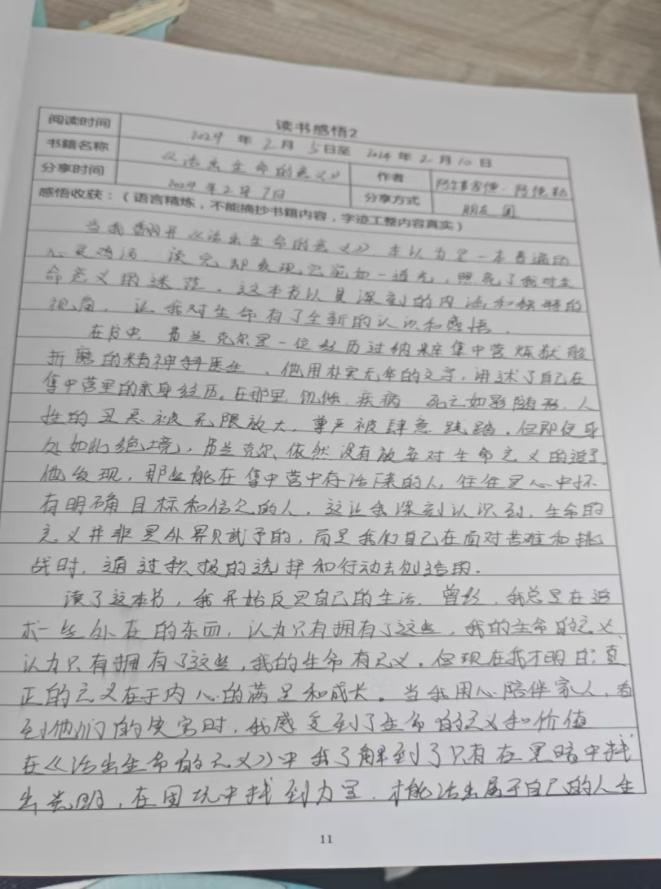 读书感悟2
阅读时间 2024 年 2 月 5 日至 2024 年 2 月 10 日
书籍名称 《活出生命的意义》 作者
分享时间 2024 年 2 月 7 日 分享方式 朋友圈
感悟收获：（语言精炼，不能摘抄书籍内容，字迹工整内容真实）
当我翻开《活出生命的意义》，本以为是一本普通的
心灵鸡汤，读完却发现它宛如一道光，照亮了我对生
命意义的迷茫，这本书以其深刻的内涵和独特的
视角，让我对生命有了全新的认识和感悟。
在书中，弗兰克尔是一位经历过纳粹集中营炼狱般
折磨的精神科医生，他用朴实无华的文字，讲述了自己在
集中营里的亲身经历。在那里，饥饿、疾病、死亡如影随形，人
性的丑恶被无限放大，尊严被肆意践踏。但即使身
处如此绝境，弗兰克尔依然没有放弃对生命意义的追寻
他发现，那些能在集中营中存活下来的人，往往是心中怀
有明确目标和信念的人，这让我深刻认识到，生命的
意义并非是外界赋予的，而是我们自己在面对苦难和挑
战时，通过积极的选择和行动去创造的。
读了这本书，我开始反思自己的生活，曾经，我总是在追
求一些外在的东西，认为只有拥有了这些，我的生命的意义
认为只有拥有了这些，我的生命有意义。但现在我才明白：真
正的意义在于内心的满足和成长。当我用心陪伴家人，看
到他们的笑容时，我感受到了生命的意义和价值
在《活出生命的意义》中我了解到了只有在黑暗中找
出光明，在困境中找到力量，才能活出属于自己的人生
11